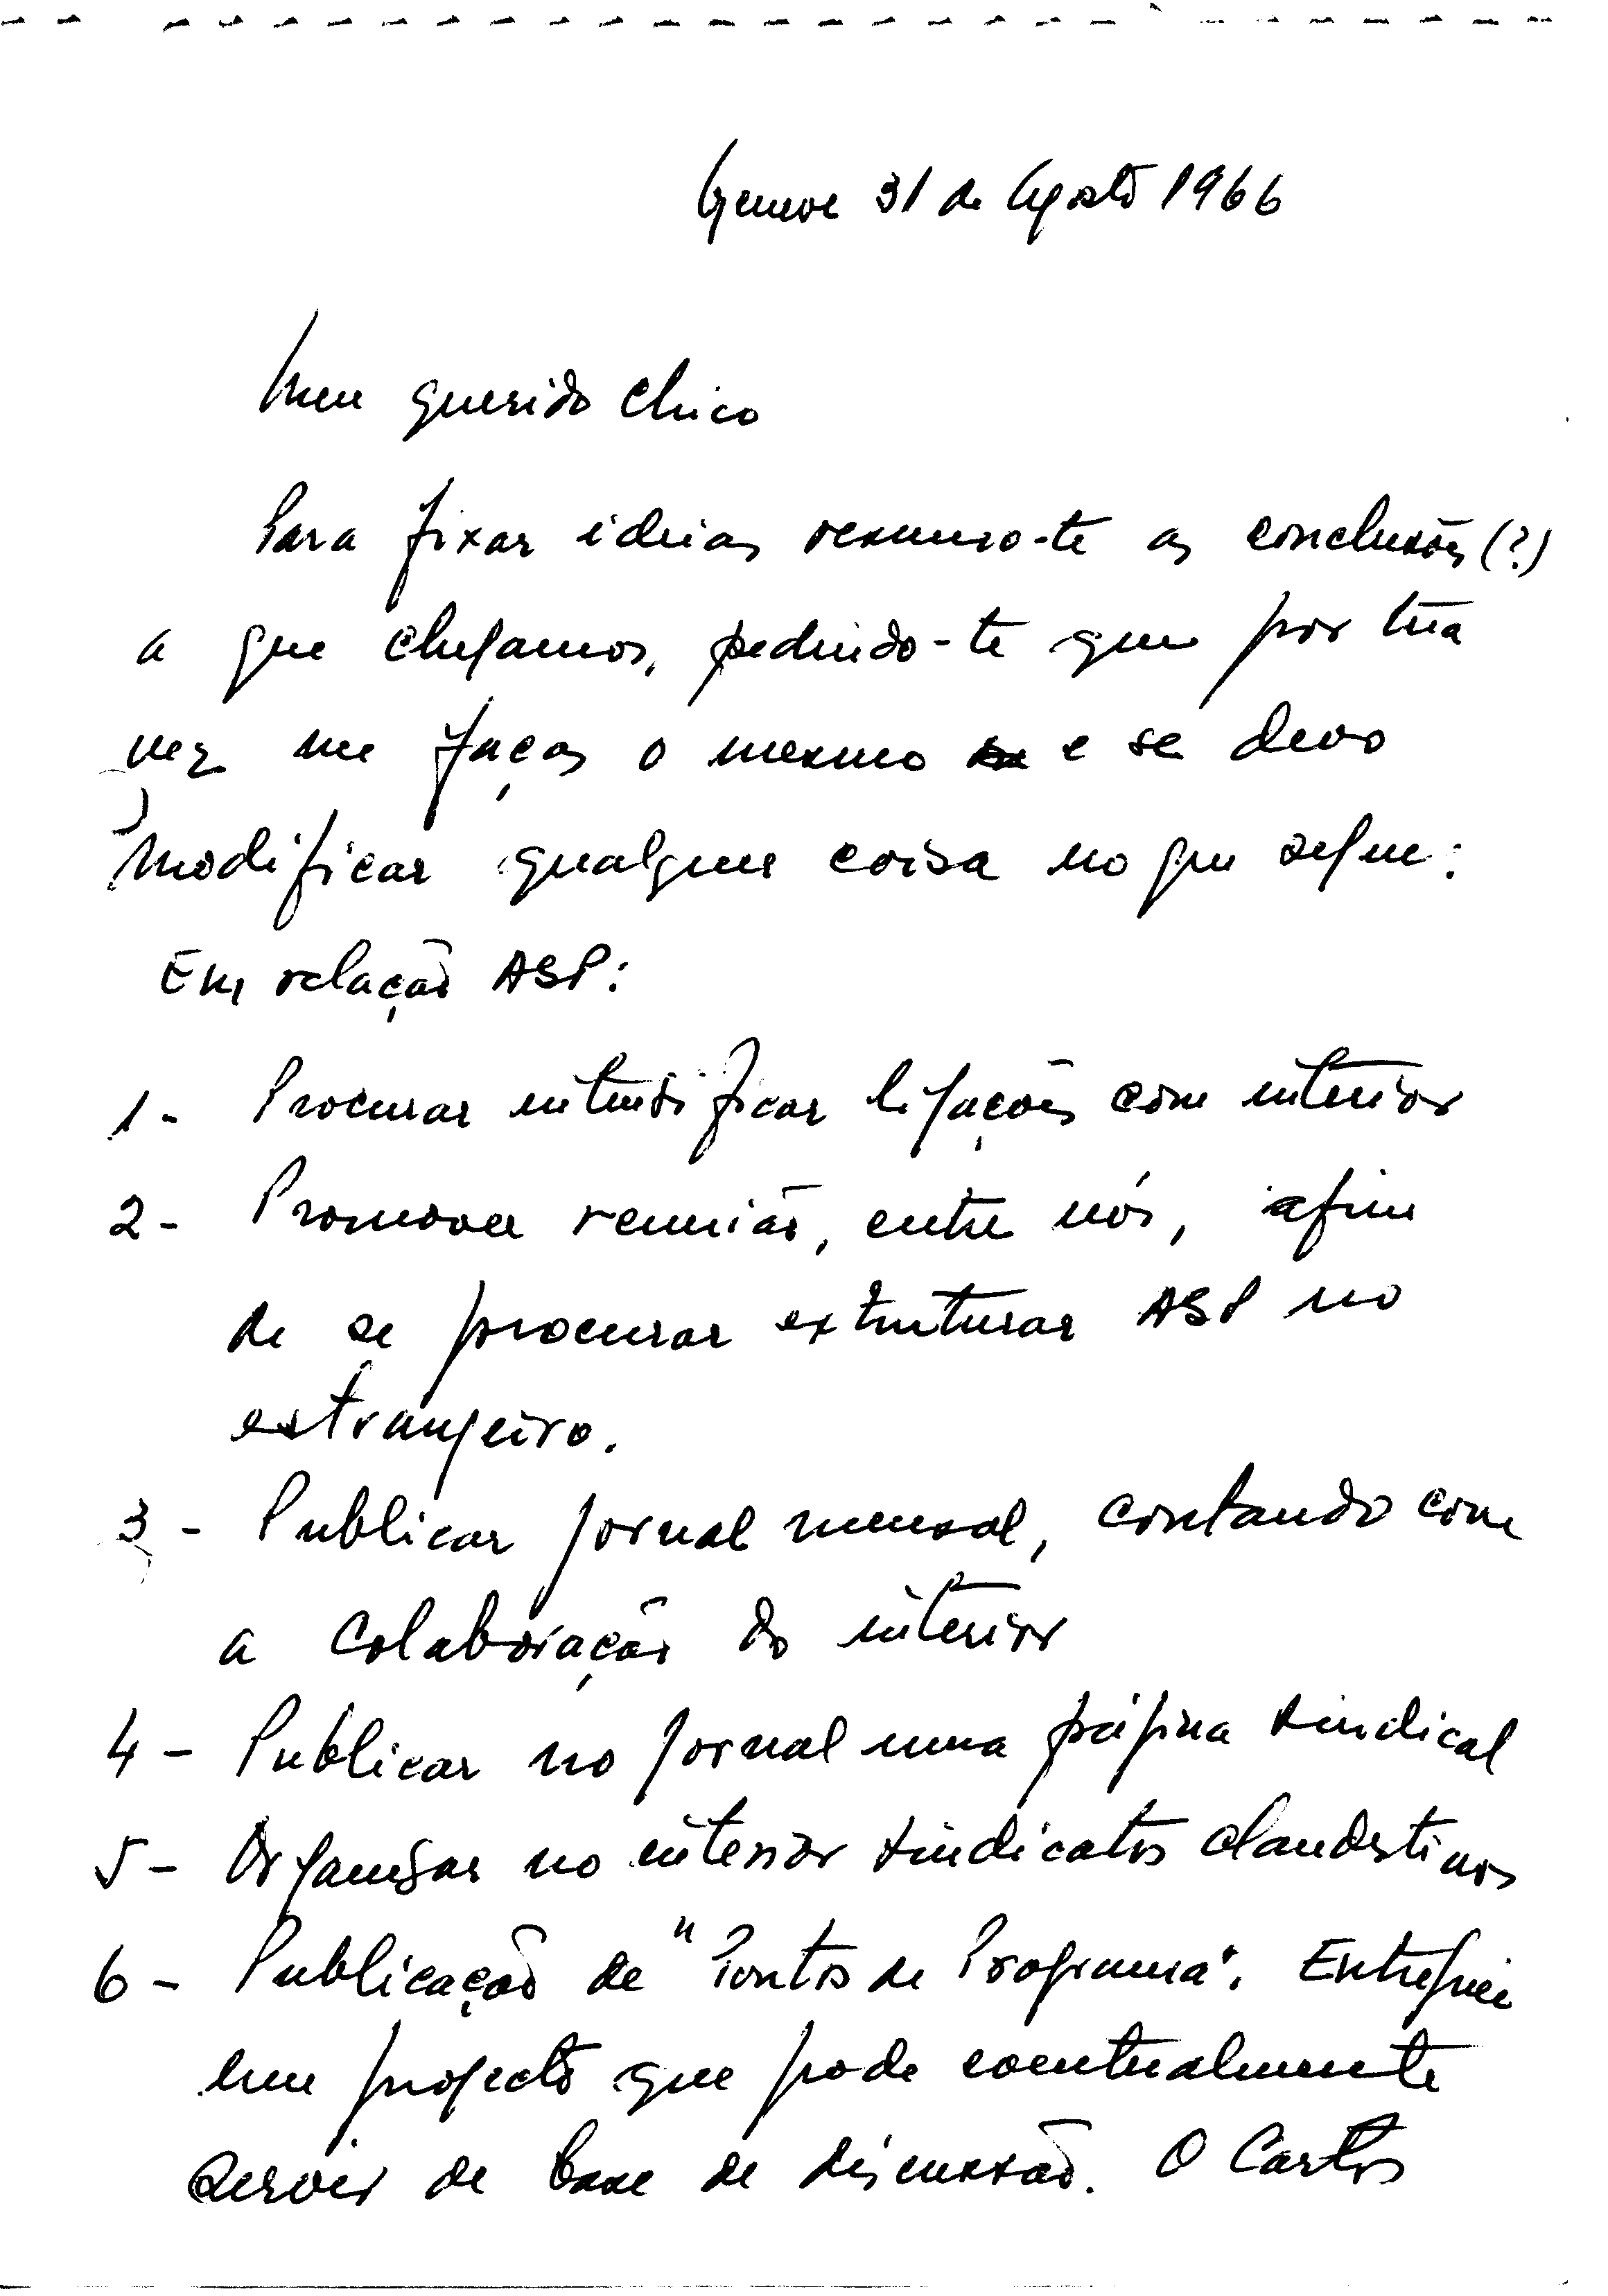 Geneve 31 de Agosto 1966
Meu querido Chico
Para fixar ideias resumo-te as conclusões (?)
a que chegamos, pedindo-te que por tua
vez me faças o mesmo e se devo
modificar qualquer coisa no que segue:
Em relação ASP:
1 - Procurar intensificar ligações com interior
2 - Promover reunião, entre nós, afim
de se procurar estruturar ASP no
estrangeiro.
3 - Publicar jornal mensal, contando com
a colaboração do interior
4 - Publicar no jornal uma página sindical
5 - Organizar no interior sindicatos clandestinos
6 - Publicação de "Pontos de Programa". Entreguei
um projecto que pode eventualmente
servir de base de discussão. O